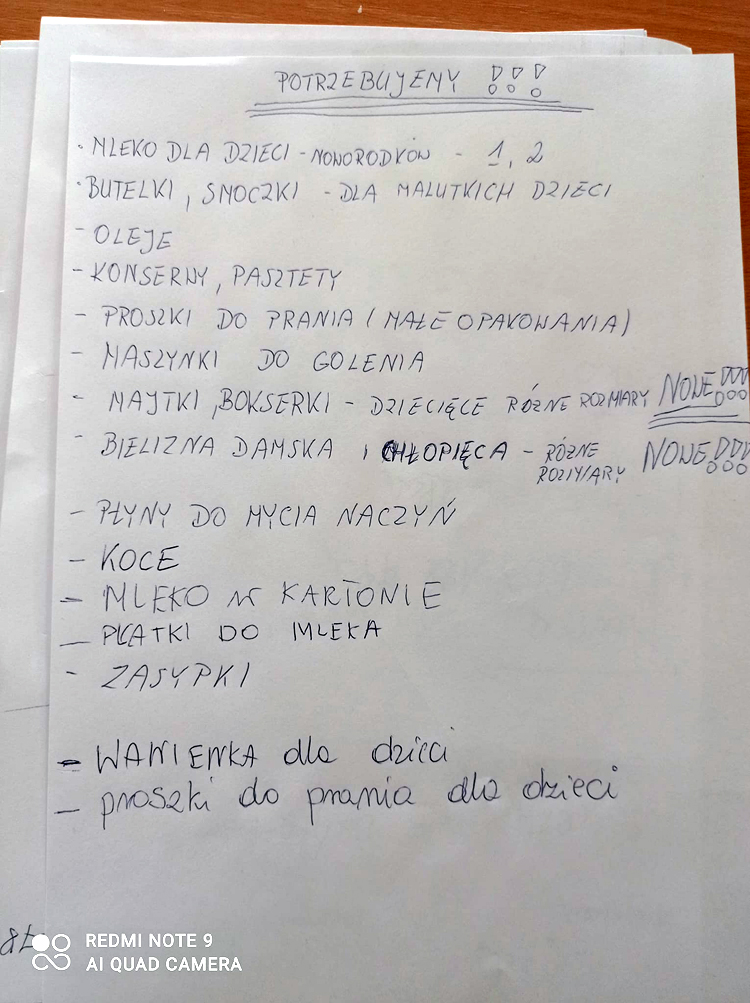 POTRZEBUJEMY !!!
· MLEKO DLA DZIECI - NOWORODKÓW - 1, 2
· BUTELKI, SMOCZKI - DLA MALUTKICH DZIECI
- OLEJE
- KONSERWY, PASZTETY
- PROSZKI DO PRANIA (MAŁE OPAKOWANIA)
- MASZYNKI DO GOLENIA
- MAJTKI, BOKSERKI - DZIECIĘCE RÓŻNE ROZMIARY NOWE!!!
- BIELIZNA DAMSKA I CHŁOPIĘCA - RÓŻNE ROZMIARY NOWE!!!
- PŁYNY DO MYCIA NACZYŃ
- KOCE
- MLEKO W KARTONIE
- PŁATKI DO MLEKA
- ZASYPKI
- WANIENKA dla dzieci
- proszki do prania dla dzieci
REDMI NOTE 9
AI QUAD CAMERA